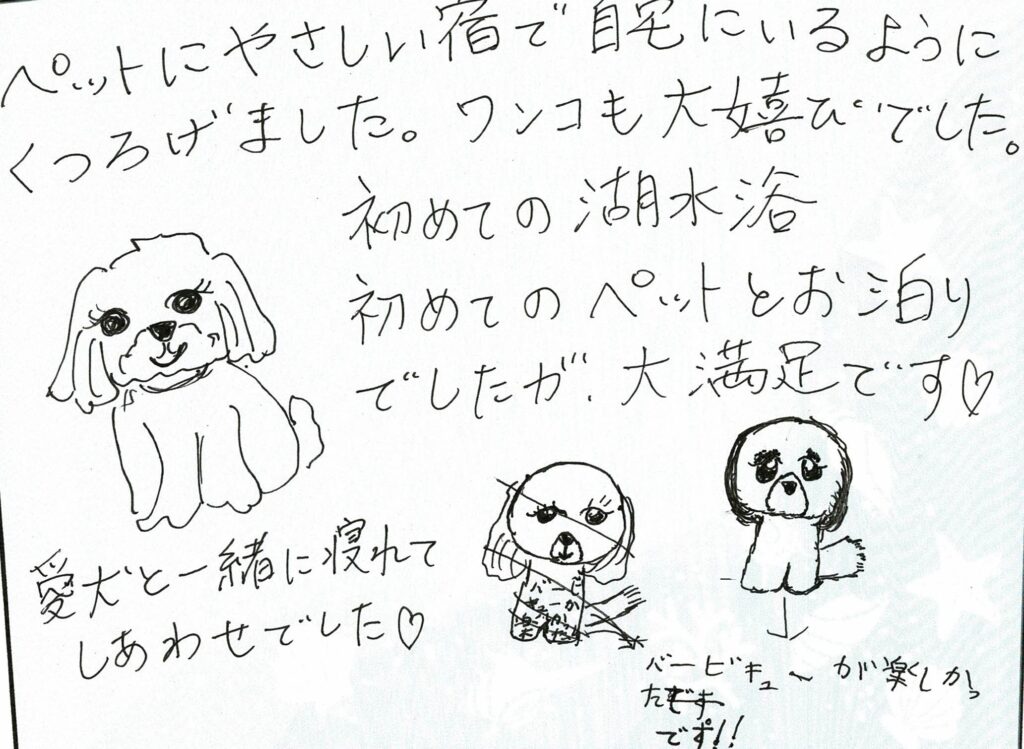 ペットにやさしい宿で自宅にいるように
くつろげました。ワンコも大嬉びでした。
初めての湖水浴
初めてのペットとお泊り
でしたが、大満足です♡
愛犬と一緒に寝れて
しあわせでした♡
バービキューが楽しかっ
た
です!!